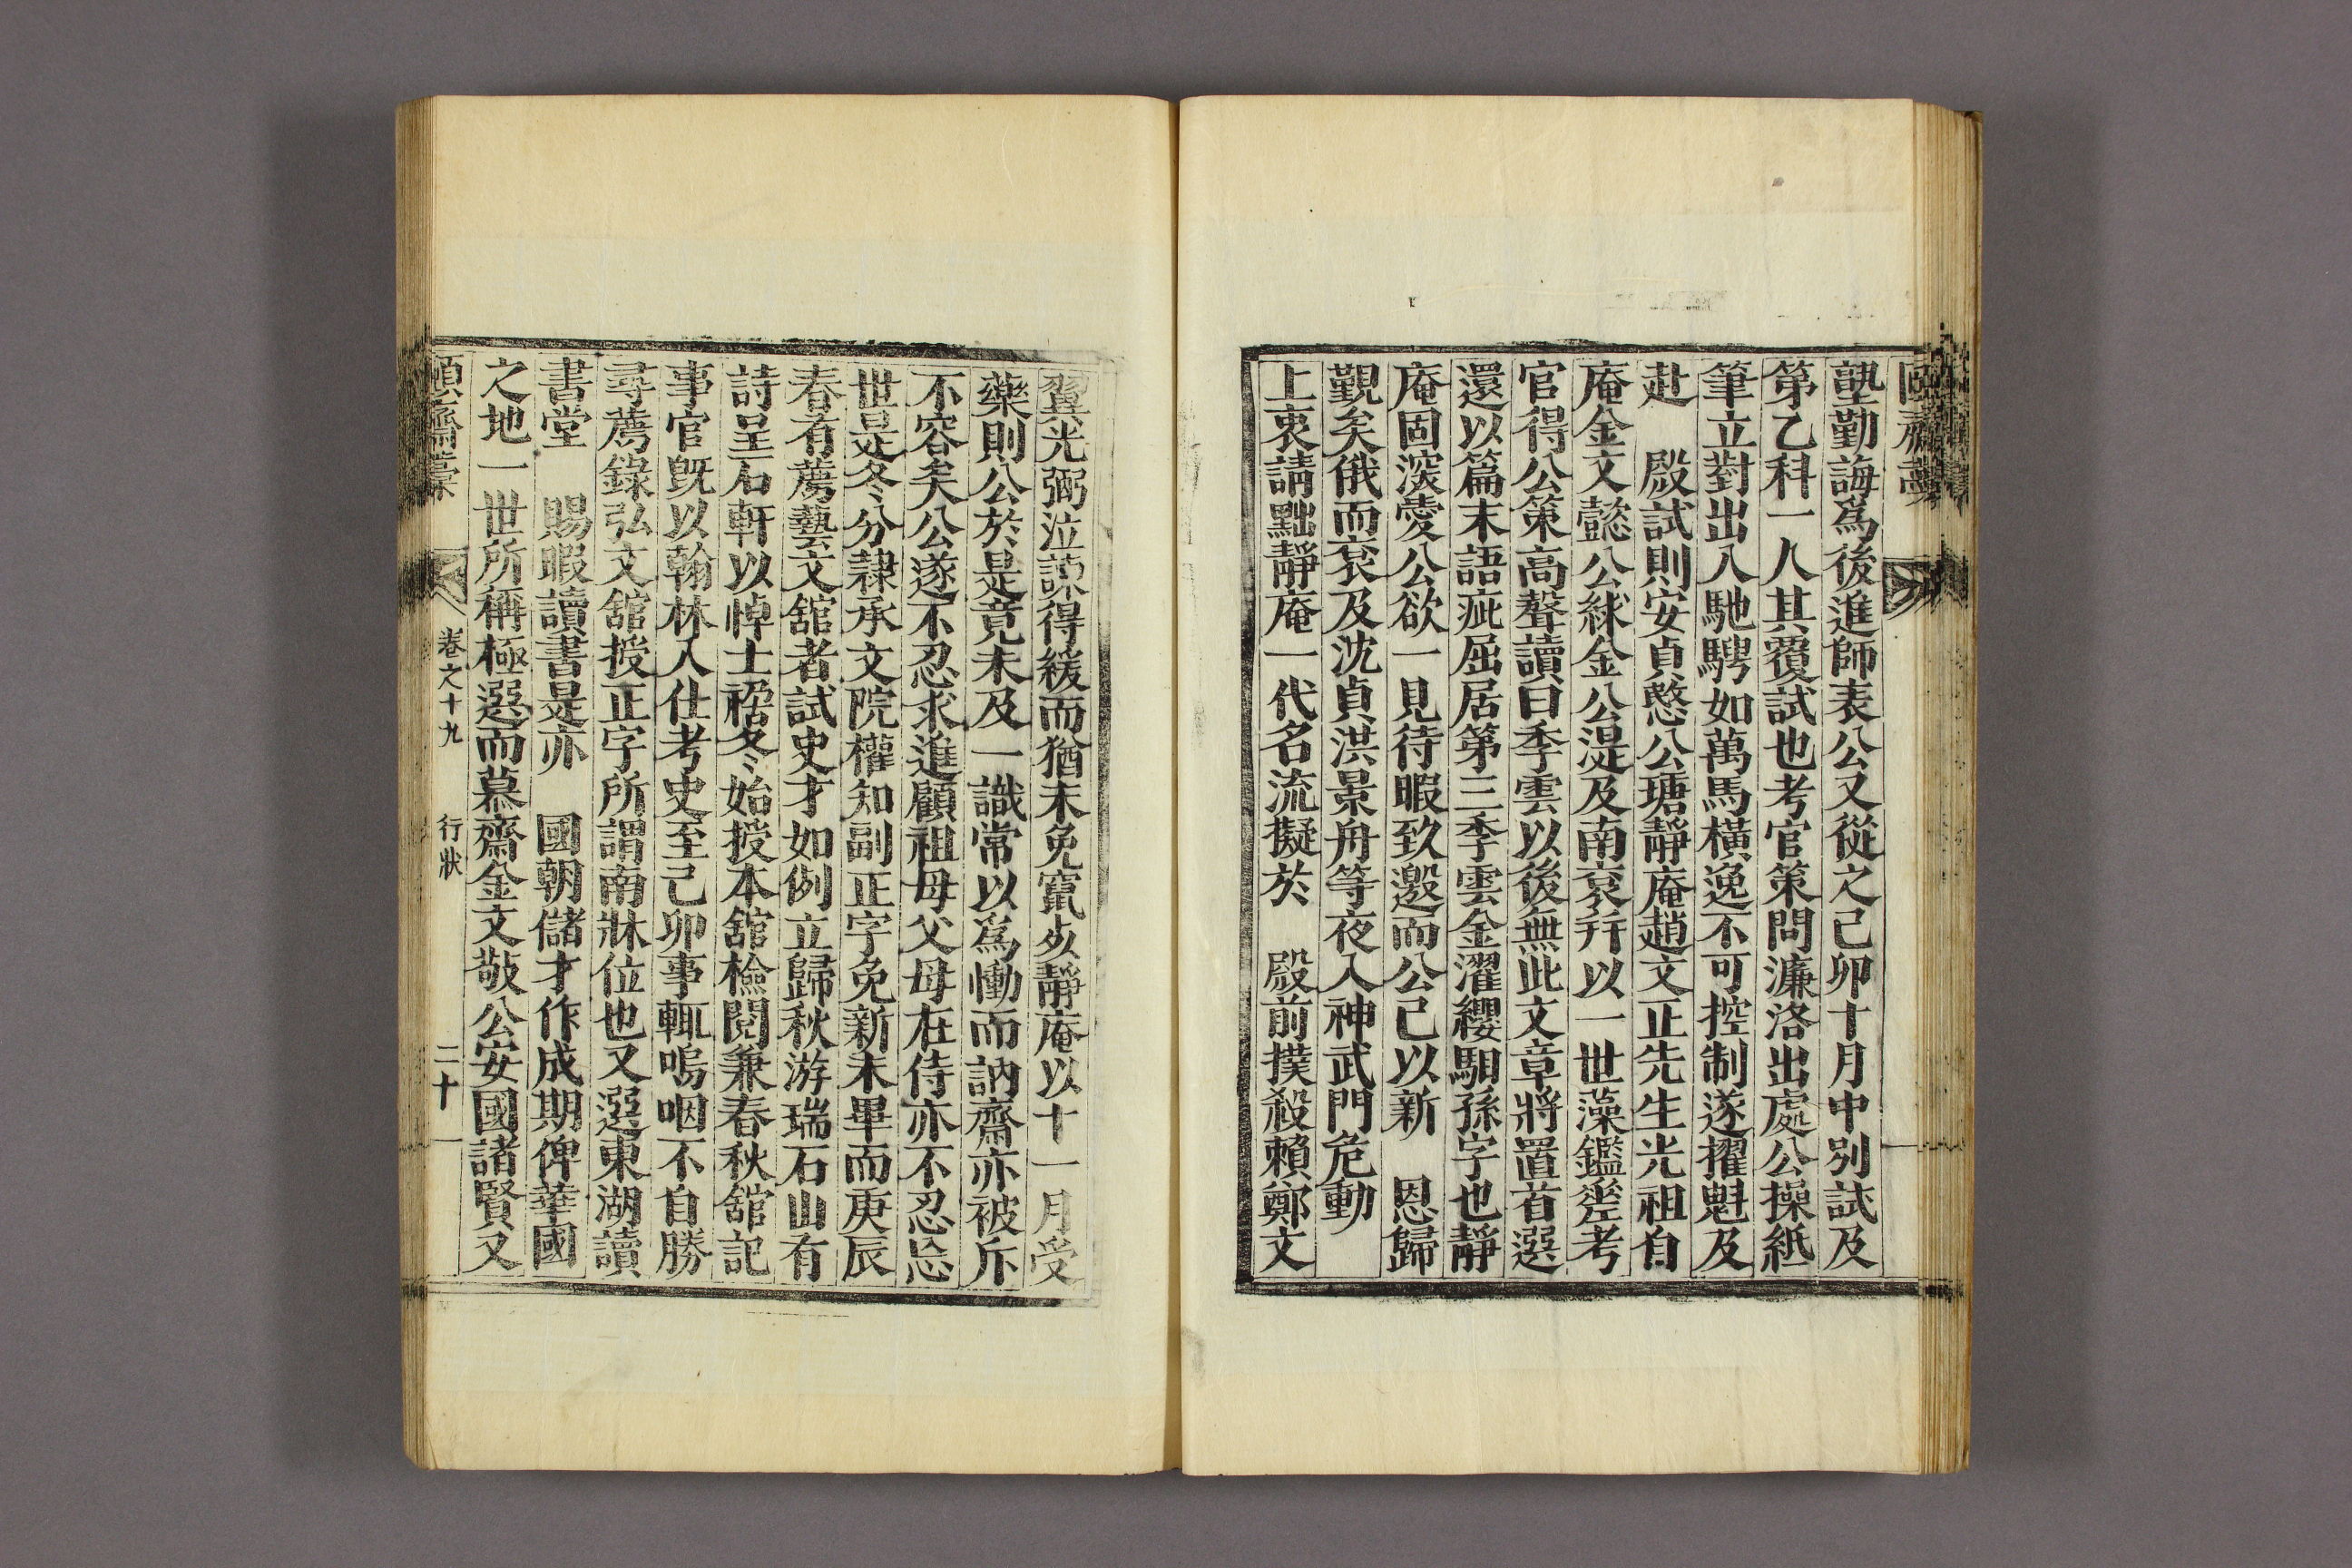 頤齋藁
塾勤誨爲後進師表公又從之己卯十月中別試及
第乙科一人其覆試也考官策問濂洛出處公操紙
筆立對出入馳騁如萬馬橫逸不可控制遂擢魁及
赴 殿試則安貞愍公瑭靜庵趙文正先生光祖自
庵金文懿公絿金公湜及南袞幷以一世藻鑑參考
官得公策高聲讀曰季雲以後無此文章將置首選
還以篇末語疵屈居第三季雲金濯纓馹孫字也靜
庵固深愛公欲一見待暇致邀而公已以新 恩歸
覲矣俄而袞及沈貞洪景舟等夜入神武門危動
上衷請黜靜庵一代名流擬於 殿前撲殺賴鄭文
翼光弼泣諒得緩而猶未免竄歿靜庵以十一月受
藥則公於是竟未及一識常以爲慟而訥齋亦被斥
不容矣公遂不忍求進顧祖母父母在侍亦不忍忘
世是冬分隷承文院權知副正字免新未畢而庚辰
春有薦藝文舘者試史才如例立歸秋游瑞石山有
詩呈石軒以悼士禍冬始授本舘檢閱兼春秋舘記
事官旣以翰林入仕考史至己卯事輒嗚咽不自勝
尋薦錄弘文舘授正字所謂南牀位也又選東湖讀
書堂 賜暇讀書是亦 國朝儲才作成期俾華國
之地一世所稱極選而慕齋金文敬公安國諸賢又
頤齋藁 卷之十九 行狀 二十